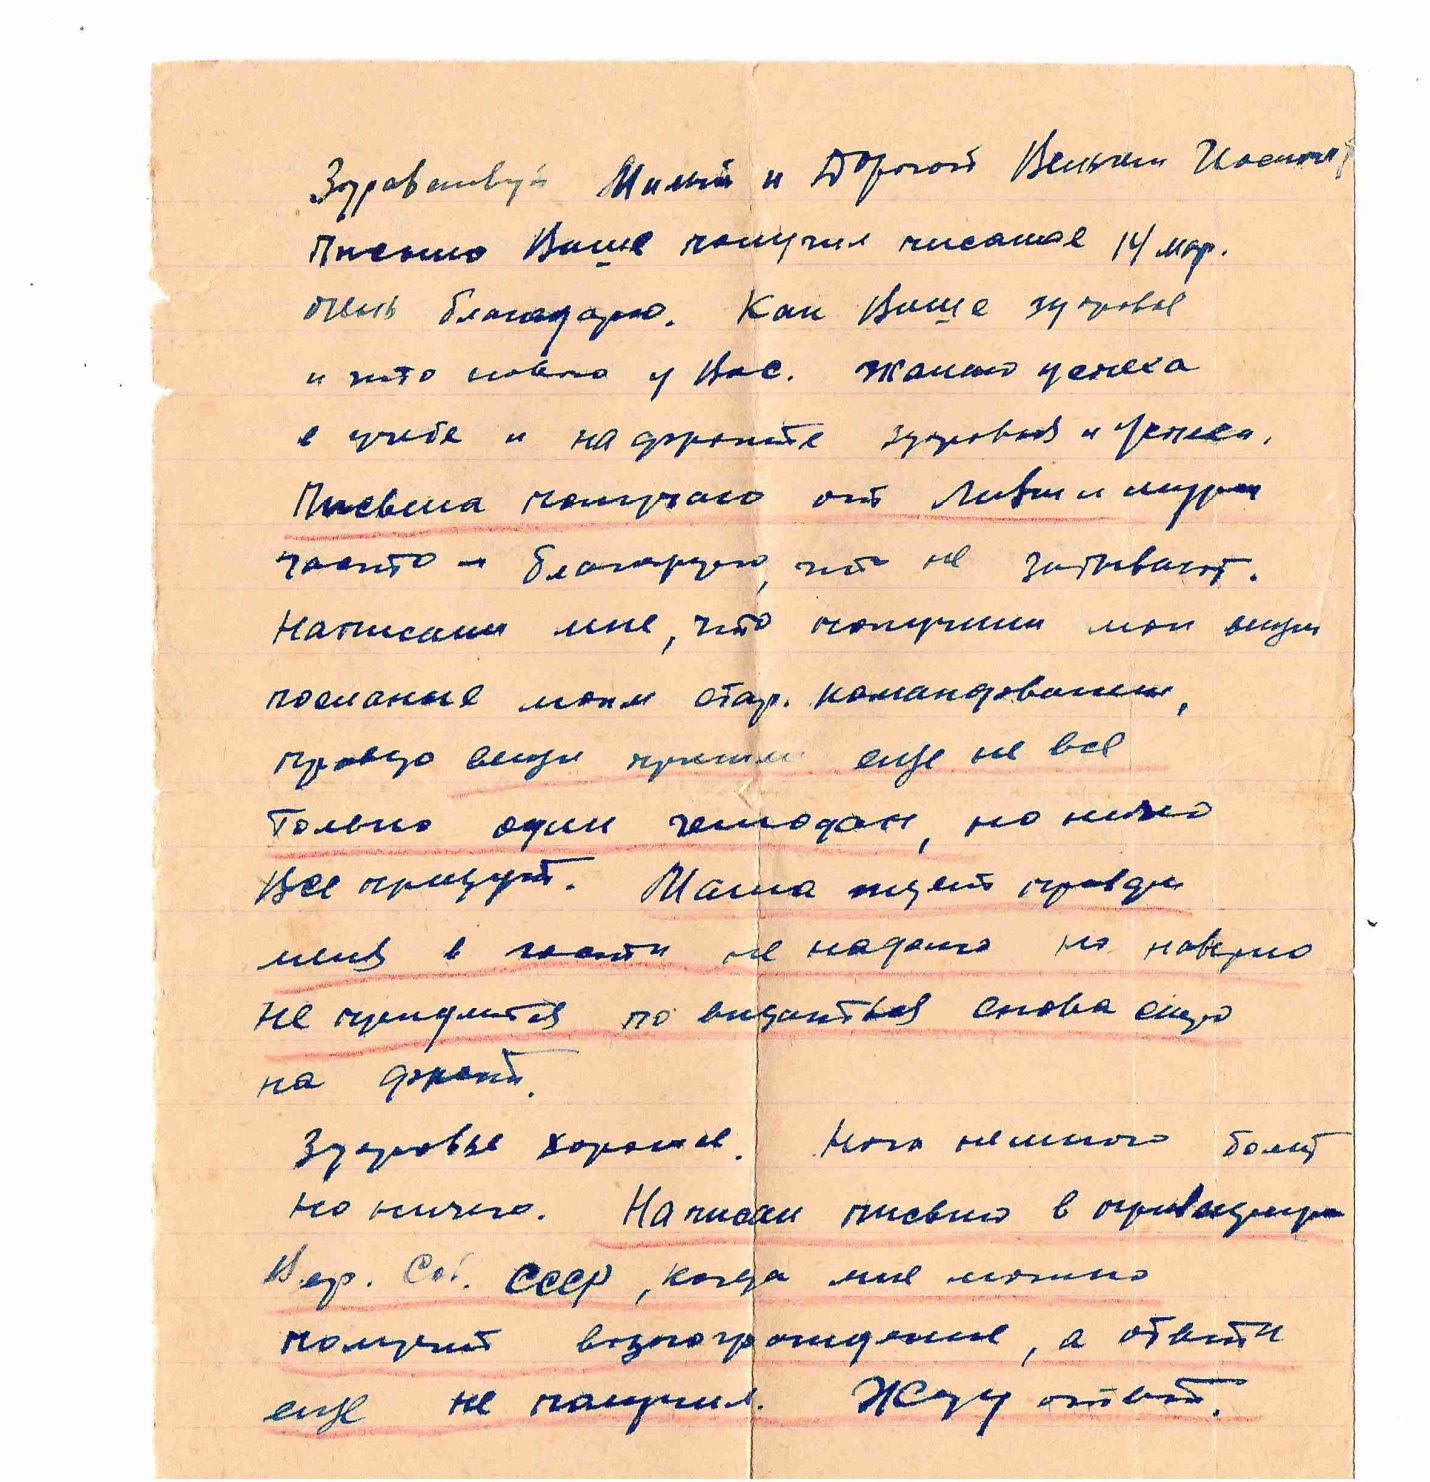 Здравствуй Милый и Дорогой Вельям
Письмо Ваше получил писаное 14 мар.
очень благодарю. Как Ваше здоровье
и что нового у Вас. Желаю успеха
в учебе и на фронте здоровья и успеха.
Письма получаю от Ливии и
часто и благодарю, что не забывают.
Написали мне, что получили мои вещи
посланые моим стар. командованием,
правда вещи пришли еще не все
только один чемодан, но ничего
Все придут. Маша ждет правда
меня в гости не надолго но наверно
не придится по видаться снова скоро
на фронт.
Здоровье хорошее. Нога немного болит
но ничего. Написал письмо в призидиум
Вер. Сов. СССР, когда мне можно
получит вознограждение, а ответи
еще не получил. Жду ответ.